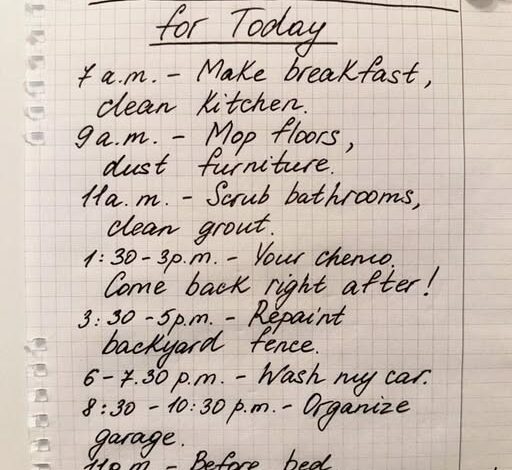 for Today
7 a.m. - Make breakfast,
clean kitchen.
9 a.m. - Mop floors,
dust furniture.
11 a.m. - Scrub bathrooms,
clean grout.
1:30 - 3 p.m. - Your chemo.
Come back right after!
3:30 - 5 p.m. - Repaint
backyard fence.
6 - 7.30 p.m. - Wash my car.
8:30 - 10:30 p.m. - Organize
garage.
11 p.m. - Before bed